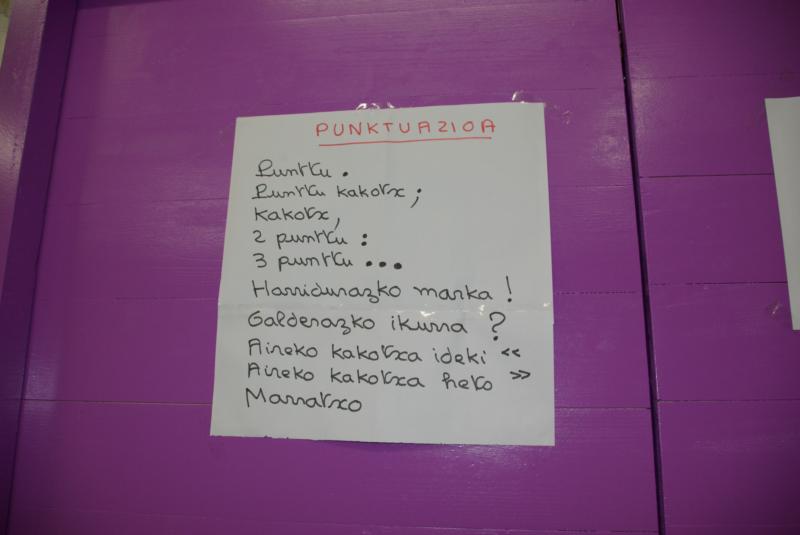 PUNKTUAZIOA
Puntku .
Puntku kakotx ;
Kakotx,
2 puntku :
3 puntku ...
Harridurazko marka !
Galderazko ikurra ?
Aireko kakotxa ideki «
Aireko kakotxa heto »
Marratxo